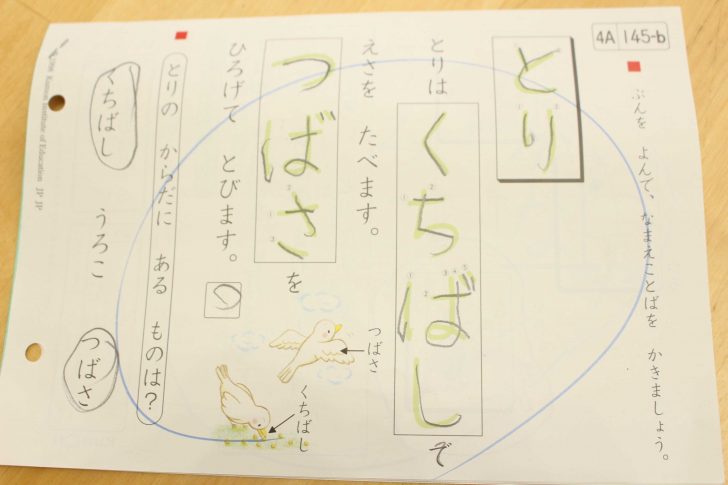 4A 145-b
ぶんを よんで、なまえことばを かきましょう。
とり
とりは くちばし で
えさを たべます。
つばさ を
ひろげて とびます。
の
つばさ
くちばし
とりの からだに ある ものは?
くちばし うろこ つばさ
Kumon Institute of Education JP JP